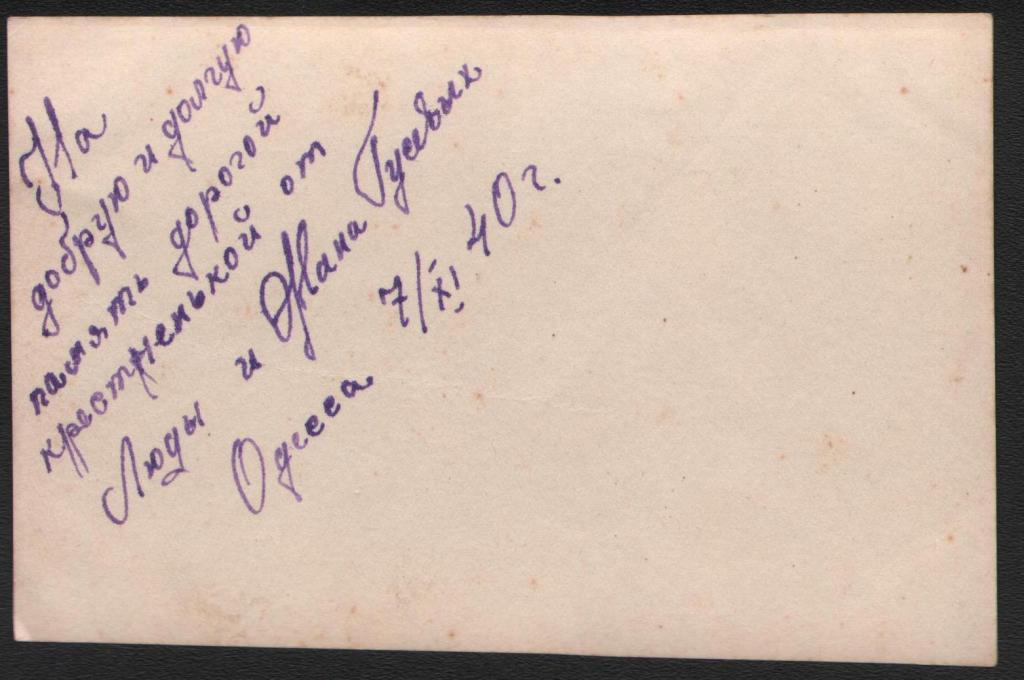 На
добрую и долгую
память дорогой
крестненькой от
Люды и Жана Гусевых
Одесса 7/XI 40 г.